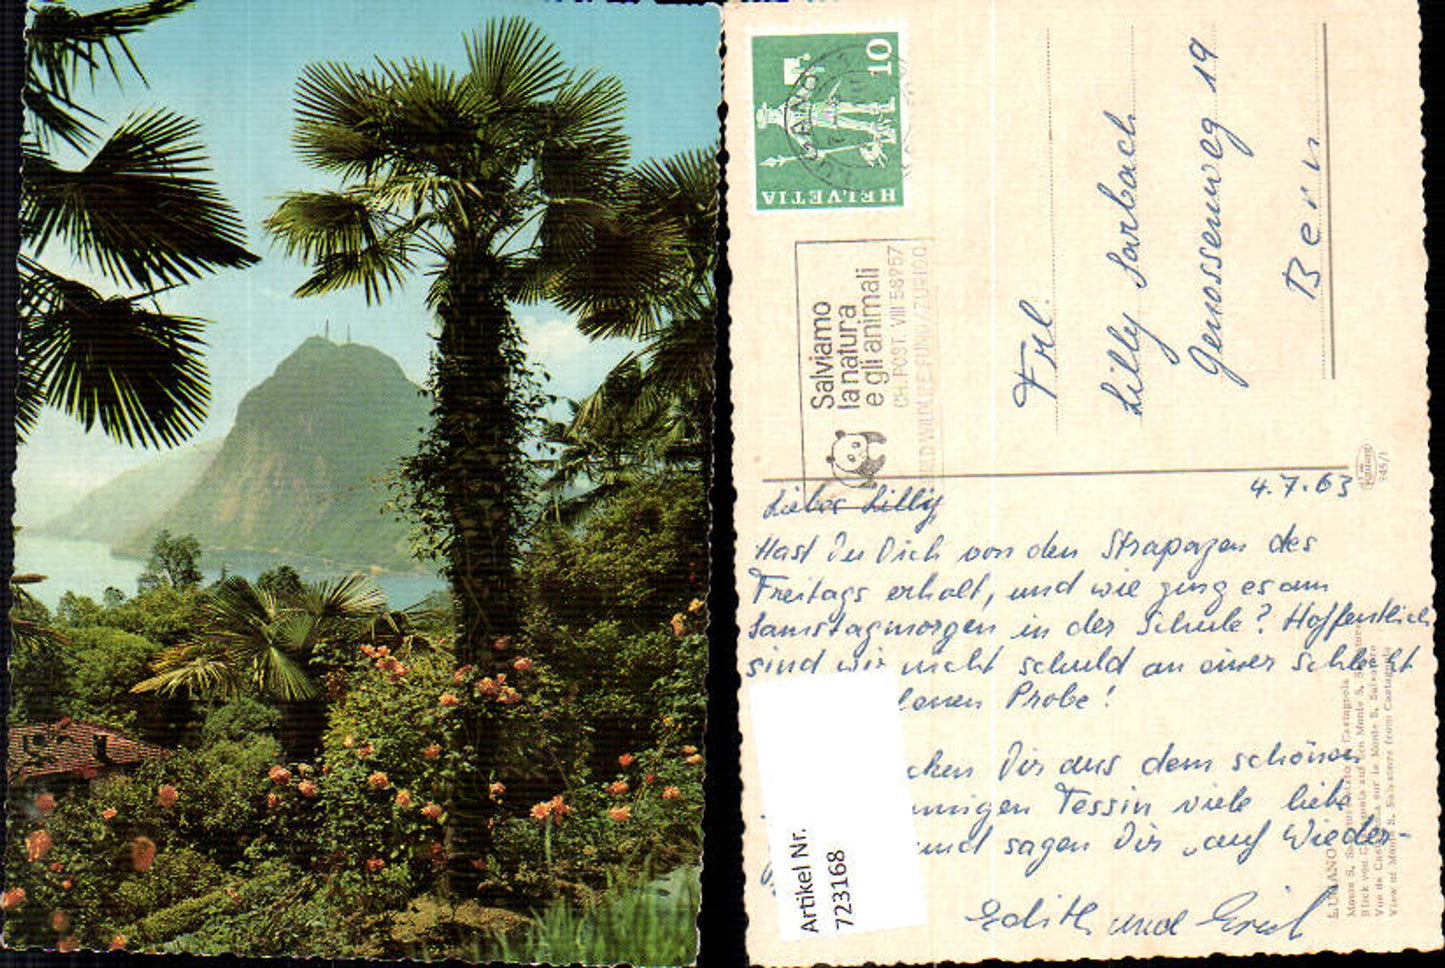 10
HELVETIA
LUGANO
Salviamo
la natura
e gli animali
CH. POST. VIII 58957
WORLD WILDLIFE FUND/ZÜRICH
Frl.
Lilly Sarbach
Genossenweg 19
Bern
345/1
4.7.63
Liebes Lilly
Hast Du Dich von den Strapazen des
Freitags erholt, und wie ging es am
Samstagmorgen in der Schule? Hoffentlich
sind wir nicht schuld an einer schlecht
Probe!
Dir aus dem schönen
Tessin viele liebe
und sagen Dir "auf Wieder-
Edith und Erich
LUGANO
Monte S. Salvatore visto da Castagnola
Blick von Castagnola auf den Monte S. Salvatore
Vue de Castagnola sur le Monte S. Salvatore
View of Monte S. Salvatore from Castagnola
Artikel Nr.
723168